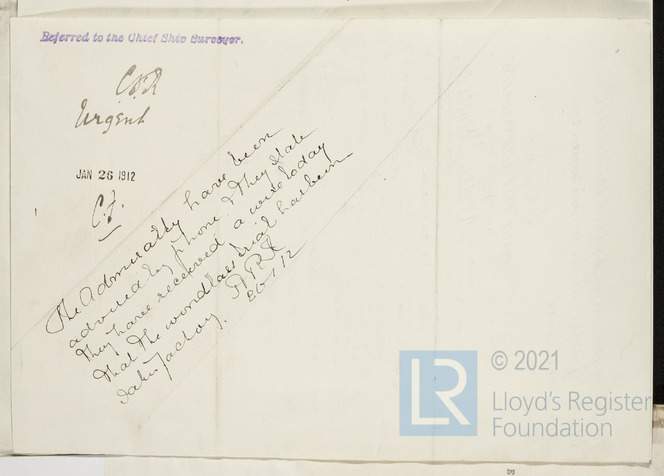 Referred to the Chief Ship Surveyor.
Urgent
JAN 26 1912
The Admiralty have been
advised by phone & they state
they have received a wire today
that the windlass trial has been
satisfactory.
26/1/12
LR
© 2021
Lloyd's Register
Foundation